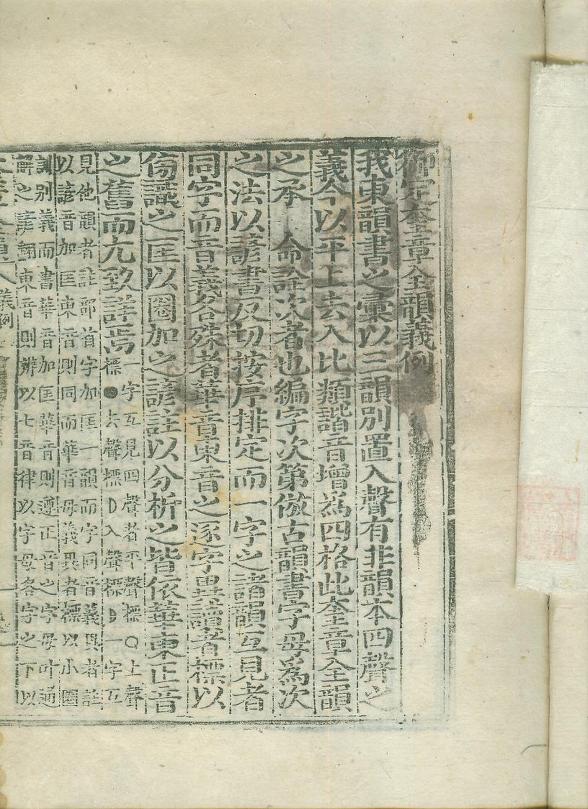 御定奎章全韻義例
我東韻書之彙以三韻別置入聲有非韻本四聲之
義今以平上去入比類諧音增爲四格此奎章全韻
之承 命詮次者也編字次第倣古韻書字母爲次
之法以諺書反切按序排定而一字之諸韻互見者
同字而音義各殊者華音東音之逐字異讀者標以
傍識之匡以圈加之諺註以分析之皆依華東正音
之舊而尤致詳焉
一字互見四聲者平聲標○上聲
標●去聲標D入聲標◗一字互
見他韻者註部首字加匡一韻而字同音義異者註
以諺音加匡東音則同而華音母義異者標以小圈
識別義而書華音加匡華音則遵正音之字母叶通
解之諺翻東音則辨以七音律以字母各字之下以
義例